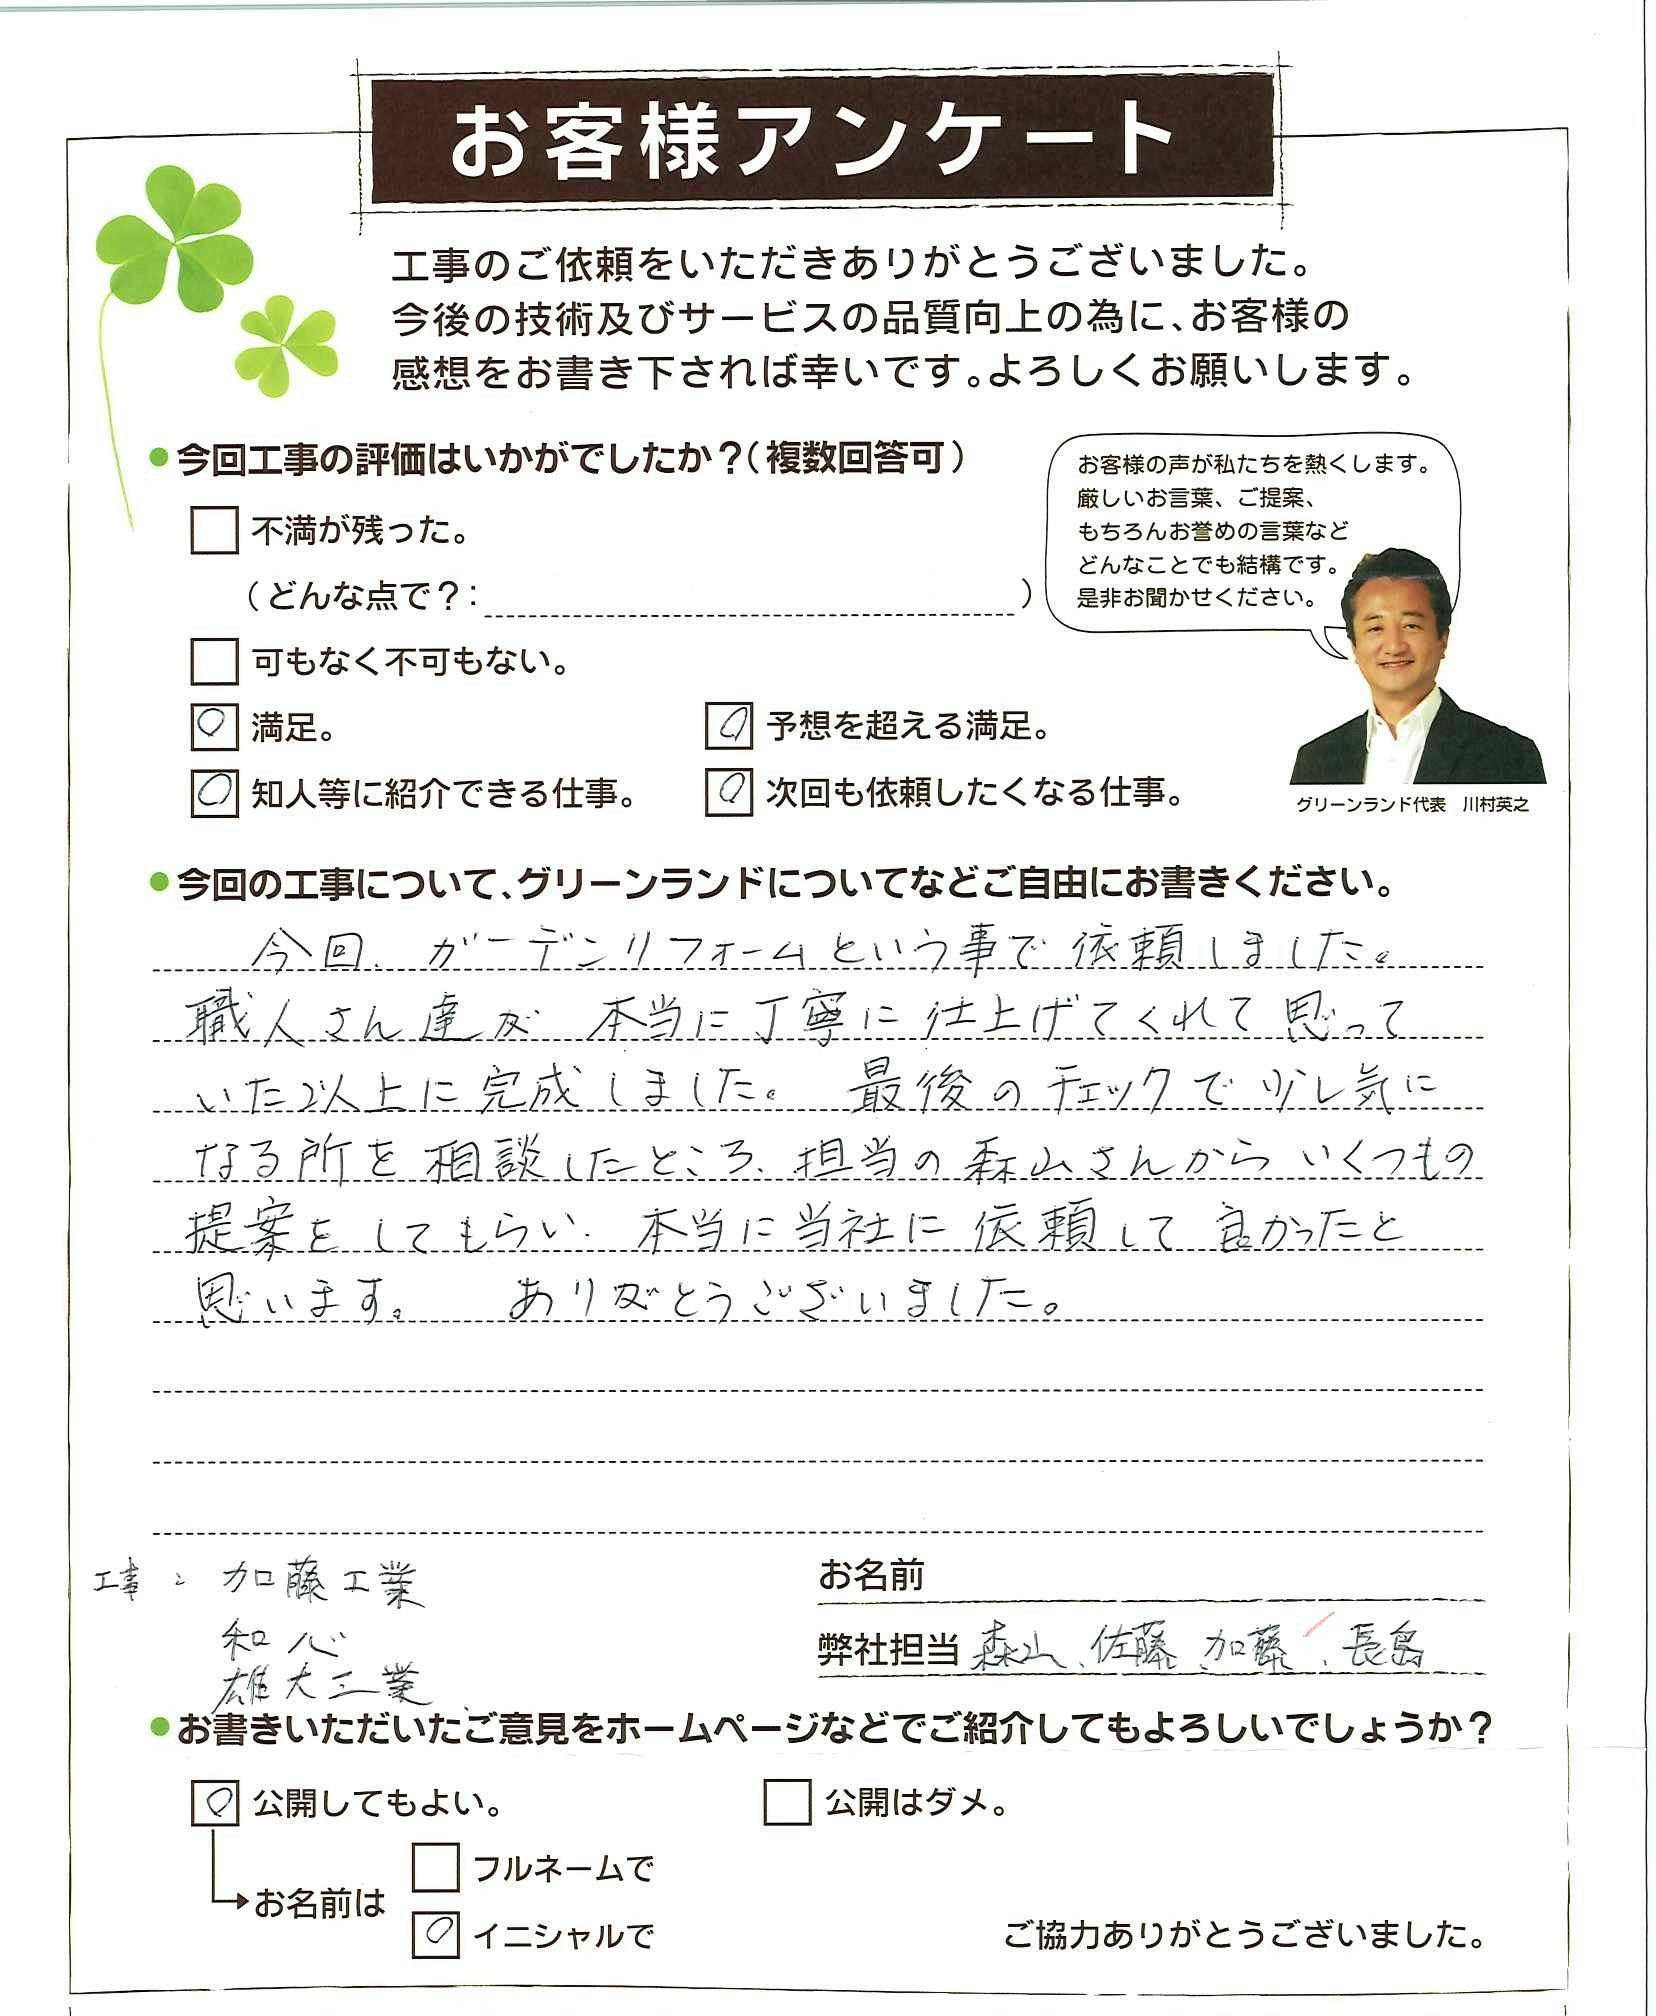 お客様アンケート
工事のご依頼をいただきありがとうございました。
今後の技術及びサービスの品質向上の為に、お客様の
感想をお書き下されば幸いです。よろしくお願いします。
●今回工事の評価はいかがでしたか？（複数回答可）
不満が残った。
（どんな点で？：　）
可もなく不可もない。
満足。
予想を超える満足。
知人等に紹介できる仕事。
次回も依頼したくなる仕事。
お客様の声が私たちを熱くします。
厳しいお言葉、ご提案、
もちろんお誉めの言葉など
どんなことでも結構です。
是非お聞かせください。
グリーンランド代表　川村英之
●今回の工事について、グリーンランドについてなどご自由にお書きください。
今回、ガーデンリフォームという事で依頼しました。
職人さん達が本当に丁寧に仕上げてくれて思って
いた以上に完成しました。最後のチェックで少し気に
なる所を相談したところ、担当の森山さんからいくつもの
提案をしてもらい、本当に当社に依頼して良かったと
思います。ありがとうございました。
工事：加藤工業
和心
雄大工業
お名前
弊社担当 森山、佐藤、加藤、長島
●お書きいただいたご意見をホームページなどでご紹介してもよろしいでしょうか？
公開してもよい。
公開はダメ。
お名前は
フルネームで
イニシャルで
ご協力ありがとうございました。